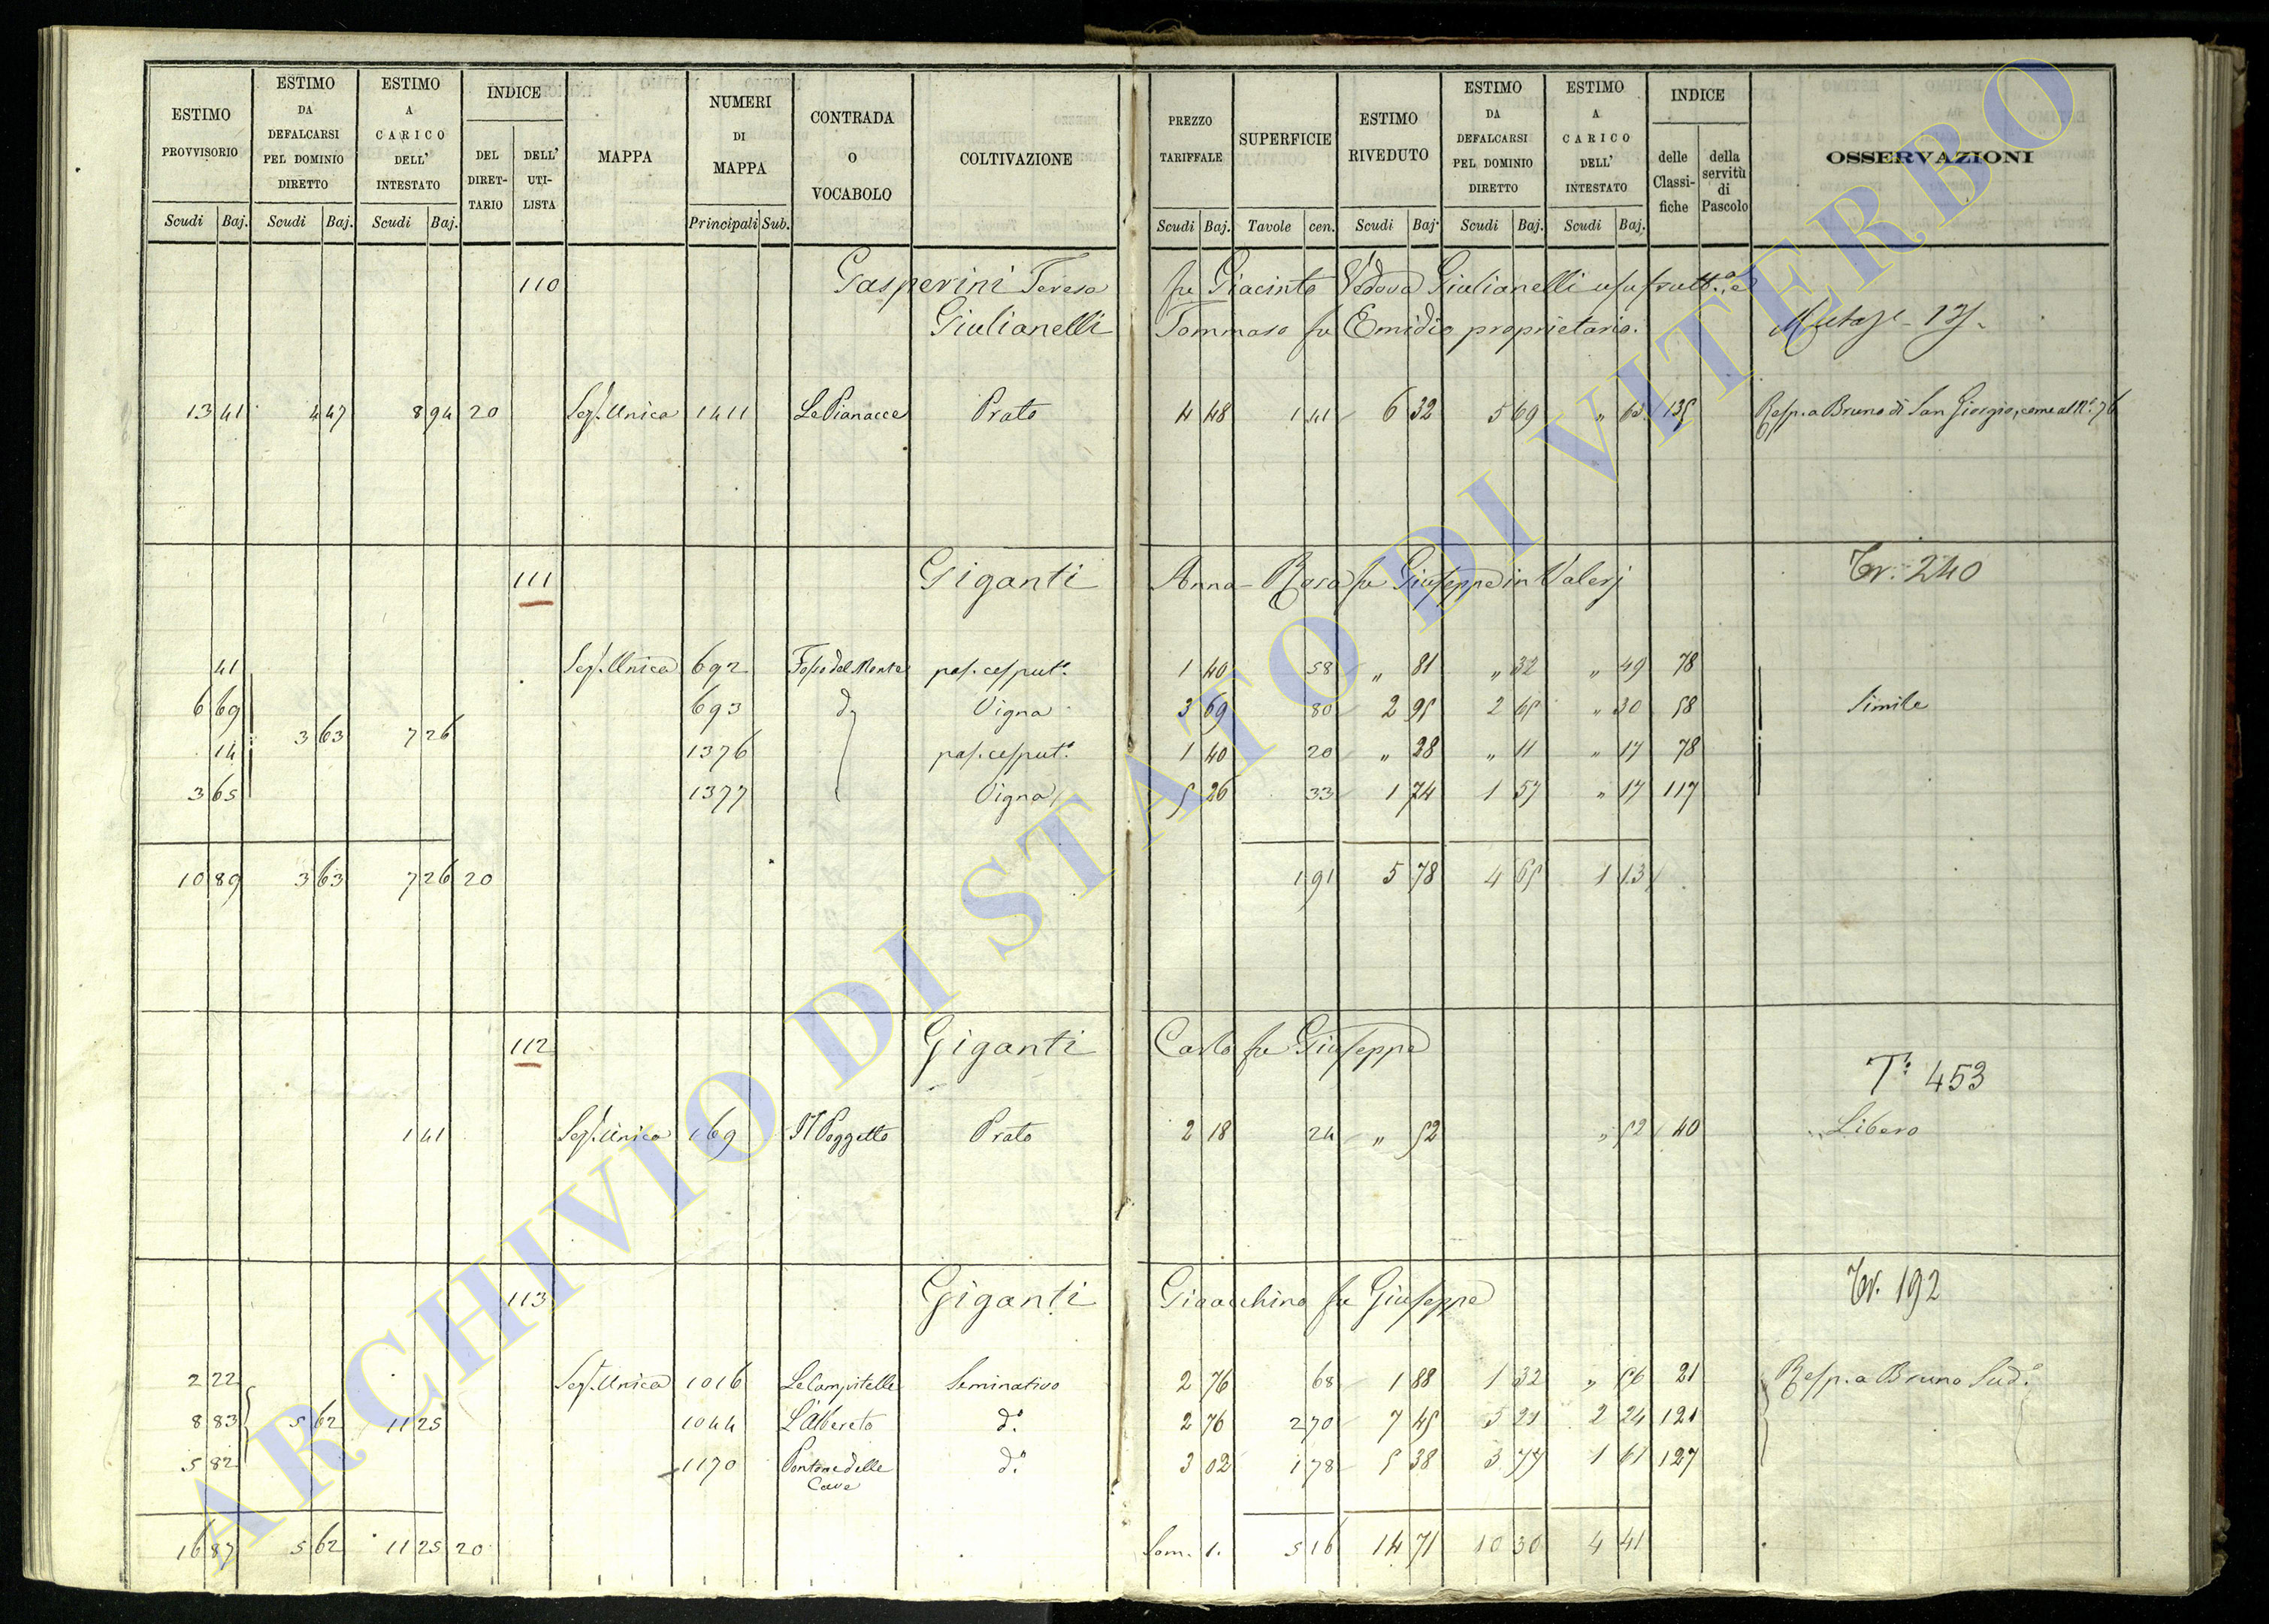 ESTIMO PROVVISORIO | ESTIMO DA DEFALCARSI PEL DOMINIO DIRETTO | ESTIMO A CARICO DELL' INTESTATO | INDICE DEL DIRETTARIO | DELL' UTILISTA | MAPPA | NUMERI DI MAPPA | CONTRADA O VOCABOLO | COLTIVAZIONE | PREZZO TARIFFALE | SUPERFICIE | ESTIMO RIVEDUTO | ESTIMO DA DEFALCARSI PEL DOMINIO DIRETTO | ESTIMO A CARICO DELL' INTESTATO | INDICE delle Classifiche | della servitù di Pascolo | OSSERVAZIONI
Scudi Baj. Scudi Baj. Scudi Baj. Principali Sub. Scudi Baj. Tavole cen. Scudi Baj. Scudi Baj. Scudi Baj.
110 Gasperini Teresa fu Giacinto Vedova Giulianelli usufrutt.a e
Giulianelli Tommaso fu Emidio proprietario.
13 41 4 47 8 94 20 Sez. Unica 1411 Le Pianacce Prato 4 48 1 41 6 32 5 69 " 63 135 Resp. a Bruno di San Giorgio, come al N.o 76
111 Giganti Anna-Rosa fu Giuseppe in Valerj Tr. 240
41 Sez. Unica 692 Fosso del Monte pas. cesput.o 1 40 58 " 81 " 32 " 49 78
6 69 693 d.o Vigna 3 69 80 2 95 2 65 " 30 58 Simile
3 63 7 26
14 1376 pas. cesput.o 1 40 20 " 28 " 11 " 17 78
3 65 1377 Vigna 5 26 33 1 74 1 57 " 17 117
10 89 3 63 7 26 20 1 91 5 78 4 65 1 13
112 Giganti Carlo fu Giuseppe
T. 453
1 41 Sez. Unica 169 Il Poggetto Prato 2 18 24 " 52 " 52 40 Libero
113 Giganti Gioacchino fu Giuseppe Tr. 192
2 22 Sez. Unica 1016 Le Campitelle Seminativo 2 76 68 1 88 1 32 " 56 21 Resp. a Bruno Sud.o
8 83 5 62 11 25 1044 L'Albereto d.o 2 76 2 70 7 45 5 21 2 24 121
5 82 1170 Pontone delle Cave d.o 3 02 1 78 5 38 3 77 1 61 127
16 87 5 62 11 25 20 Som. 1. 5 16 14 71 10 30 4 41
ARCHIVIO DI STATO DI VITERBO